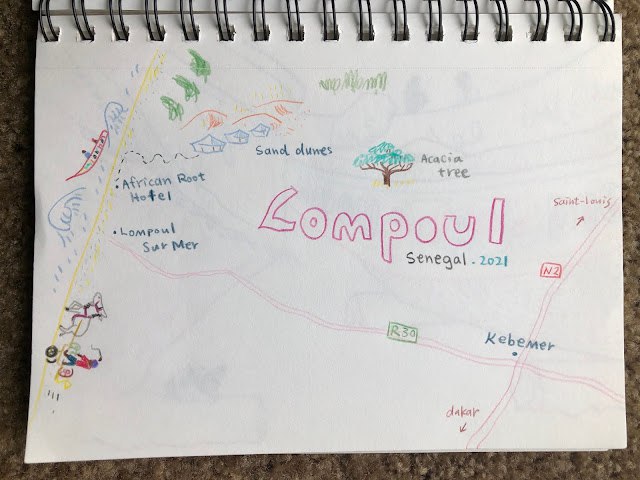 Sand dunes
Acacia
tree
African Root
Hotel
Saint-Louis
Lompoul
Lompoul
Sur Mer
Senegal . 2021
N2
R30
Kebemer
dakar